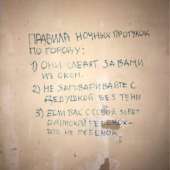 ПРАВИЛА НОЧНЫХ ПРОГУЛОК
ПО ГОРОДУ:
1) ОНИ СЛЕДЯТ ЗА ВАМИ
ИЗ ОКОН.
2) НЕ ЗАГОВАРИВАЙТЕ С
ДЕДУШКОЙ БЕЗ ТЕНИ
3) ЕСЛИ ВАС С СОБОЙ ЗОВЁТ
РЕБЁНОК-
ЭТО НЕ РЕБЁНОК.